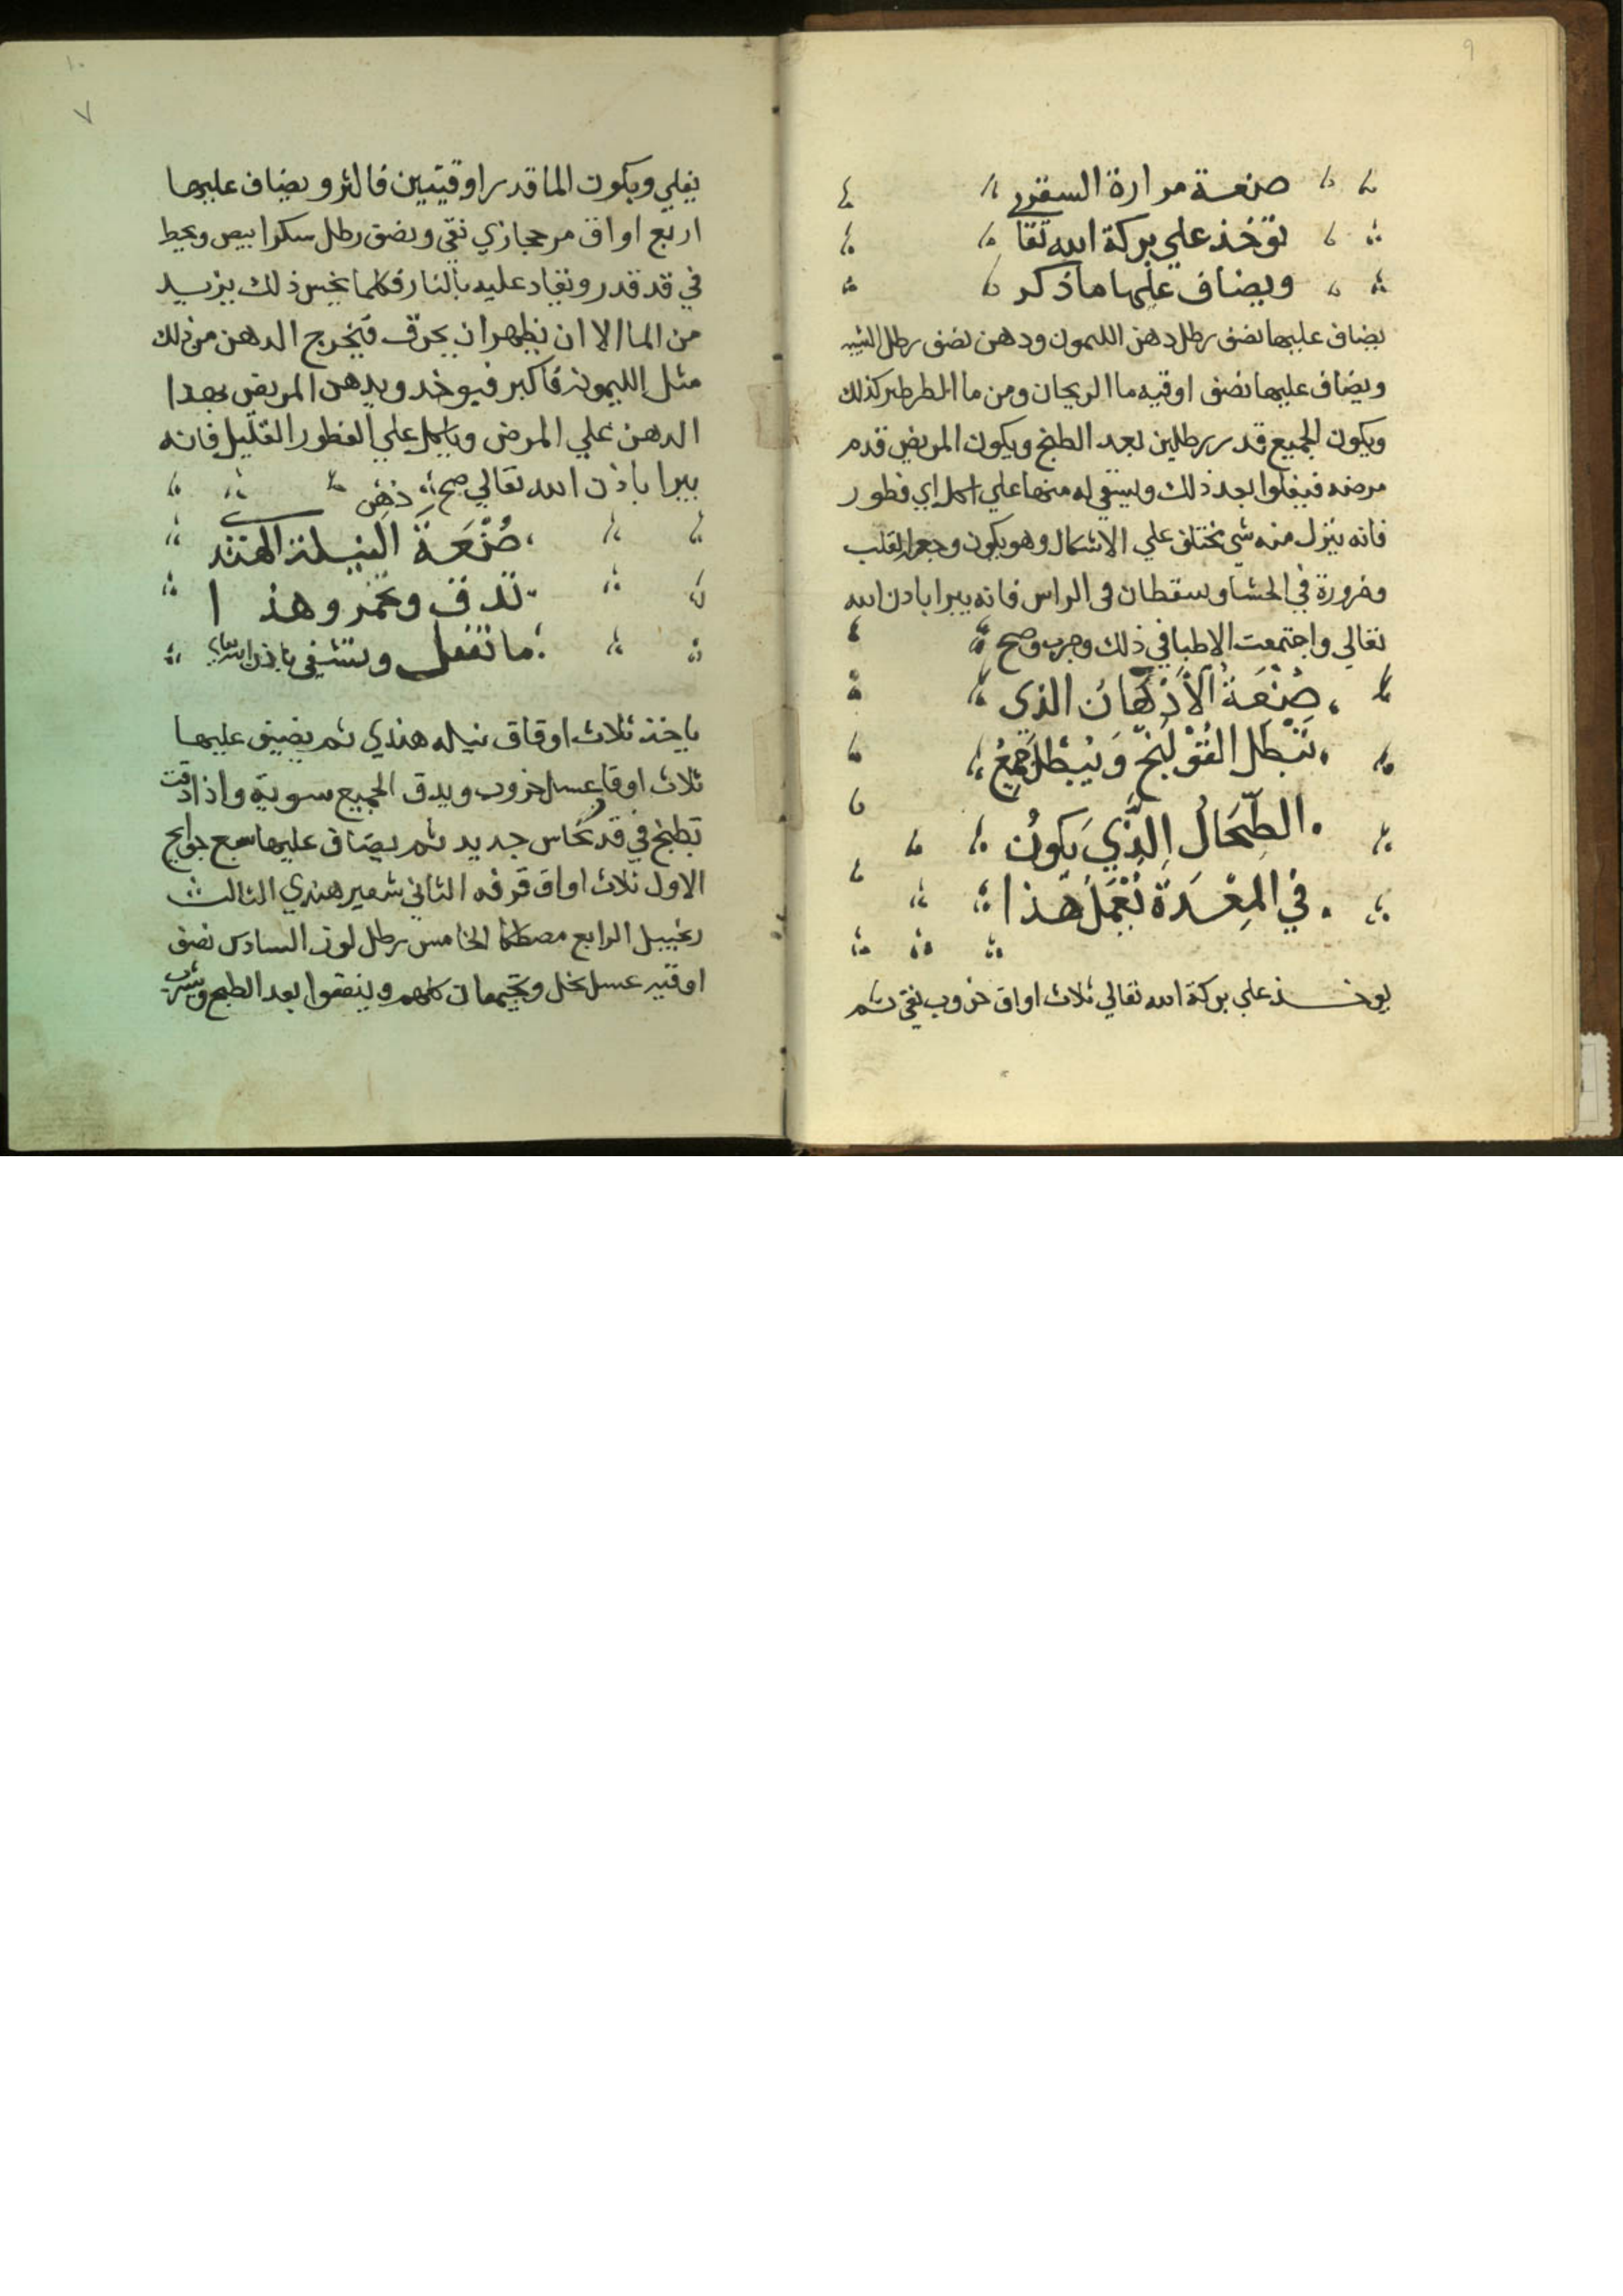 ٩
صنعة مرارة السقري
توخذ علي بركة الله تعا
ويضاف عليها ما ذكر
يضاف عليها نصف رطل دهن الليمون ودهن نصف رطل
ويضاف عليها نصف اوقيه ما الريحان ومن ما كذلك
ويكون الجميع قدر رطلين بعد الطبخ ويكون المريض قدم
مرضه فيغلوا بعد ذلك ويسقي له منها علي فطور
فانه ينزل منه شي مختلف علي الاشكال وهو يكون وجع القلب
وضرورة في الحشا وسقطان في الراس فانه يبرا باذن الله
تعالي واجتمعت الاطبا في ذلك وجرب وصح
صُنْعَةُ الأَدْهَان الذي
تَبْطل القُوْلَنْج وَيُبْطل جَميعُ
الطِّحَالُ الَّذِي يَكونُ
في المِعْدَة تَعْمَل هَذا
يوخذ علي بركة الله تعالي ثلاث اواق خروب نقي ثم
١٠
٧
يغلي ويكون الما قدر اوقيتين فاكثر ويضاف عليها
اربع اواق مر حجازي نقي ونصف رطل سكر ابيض ويحط
في قد قدر ويقاد عليه بالنار فكلما ذلك يزيد
من الما الا ان يظهر ان يحرق فيخرج الدهن من ذلك
مثل الليمونه فاكبر فيوخد ويدهن المريض بهدا
الدهن علي المرض وياكل علي الفطور القليل فانه
يبرا باذن الله تعالي صح
صُنْعَةَ النيلة الهند
تدق وتخمر وهذا
ما تفعل وتشفي باذن الله تعالي
ياخذ ثلاث اوقاق نيله هندي ثم يضيف عليها
ثلاث اوقا عسل خروب ويدق الجميع سوية واذا دقت
تطبخ في قد نحاس جديد ثم يضاف عليها سبع حوايج
الاول ثلاث اواق قرفه الثاني شعير هندي الثالث
زنجبيل الرابع مصطكا الخامس رطل لوز السادس نصف
اوقيه عسل نحل ويجتمعان كلهم وينقعوا بعد الطبخ ويشرب